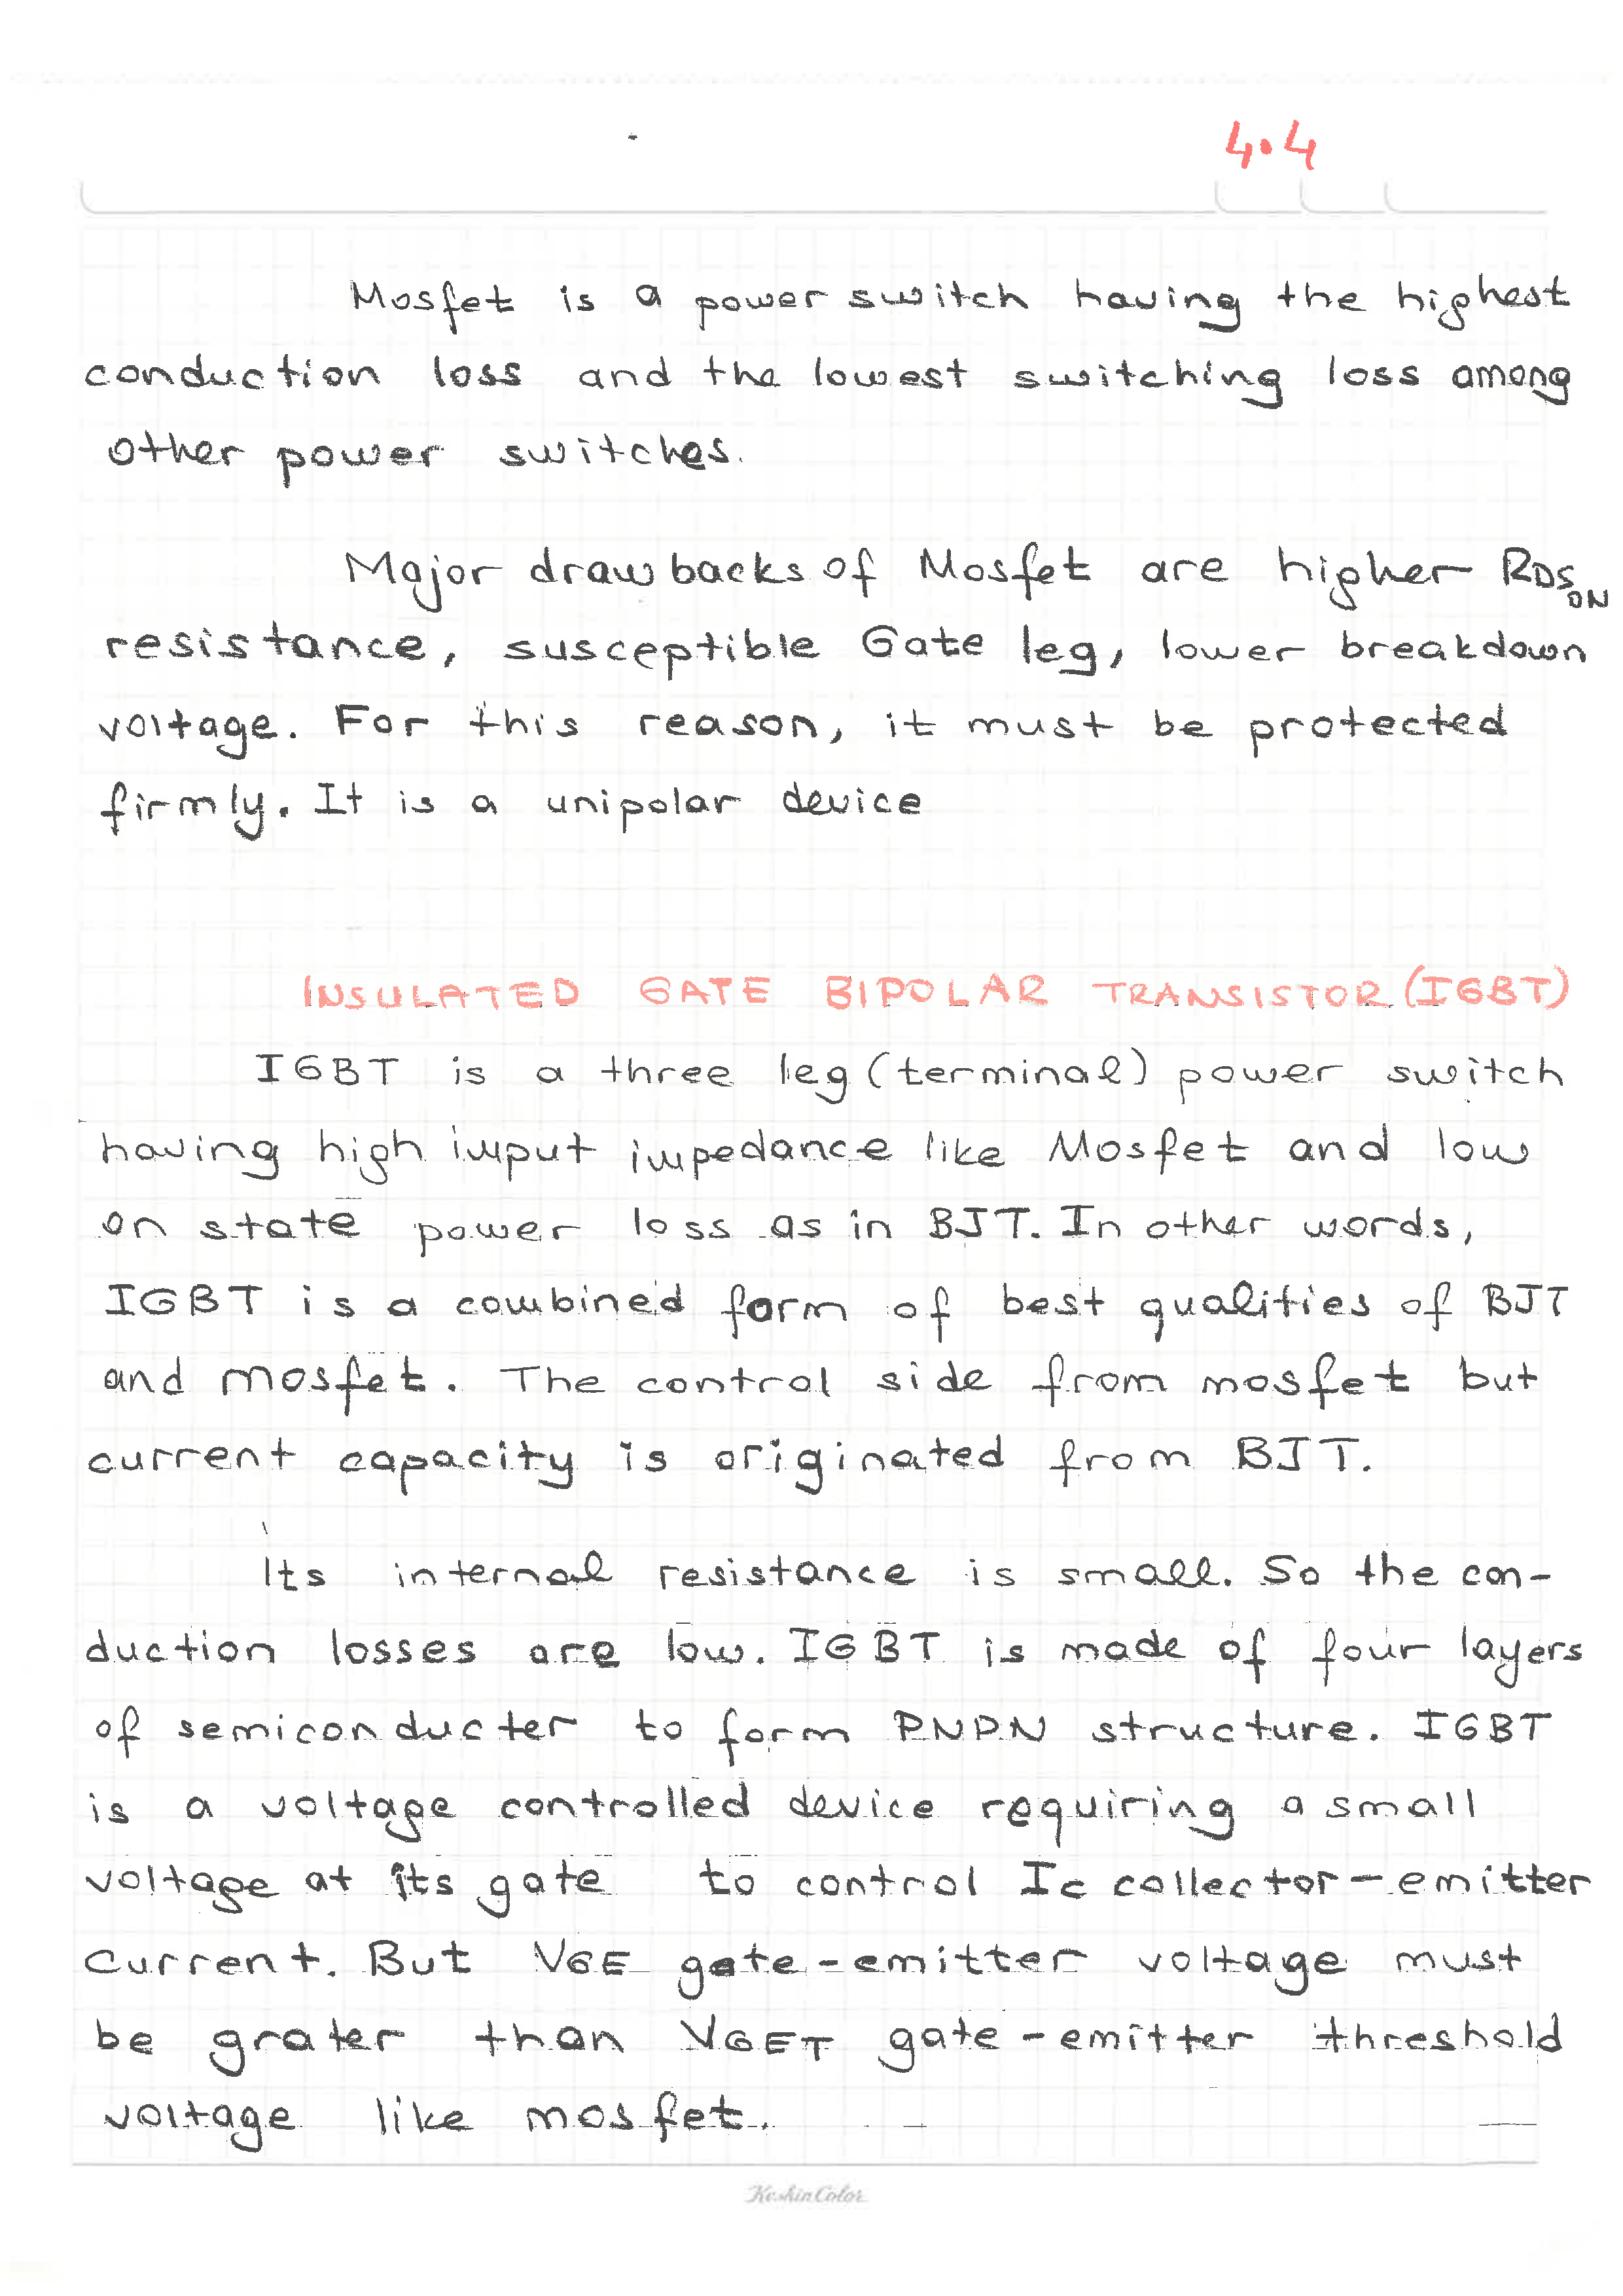 4.4
Mosfet is a power switch having the highest
conduction loss and the lowest switching loss among
other power switches.
Major drawbacks of Mosfet are higher RDSON
resistance, susceptible Gate leg, lower breakdown
voltage. For this reason, it must be protected
firmly. It is a unipolar device
INSULATED GATE BIPOLAR TRANSISTOR (IGBT)
IGBT is a three leg (terminal) power switch
having high input impedance like Mosfet and low
on state power loss as in BJT. In other words,
IGBT is a combined form of best qualities of BJT
and mosfet. The control side from mosfet but
current capacity is originated from BJT.
Its internal resistance is small. So the con-
duction losses are low. IGBT is made of four layers
of semiconducter to form PNPN structure. IGBT
is a voltage controlled device requiring a small
voltage at its gate to control Ic collector-emitter
current. But VGE gate-emitter voltage must
be grater than VGET gate-emitter threshold
voltage like mosfet.
KeskinColor